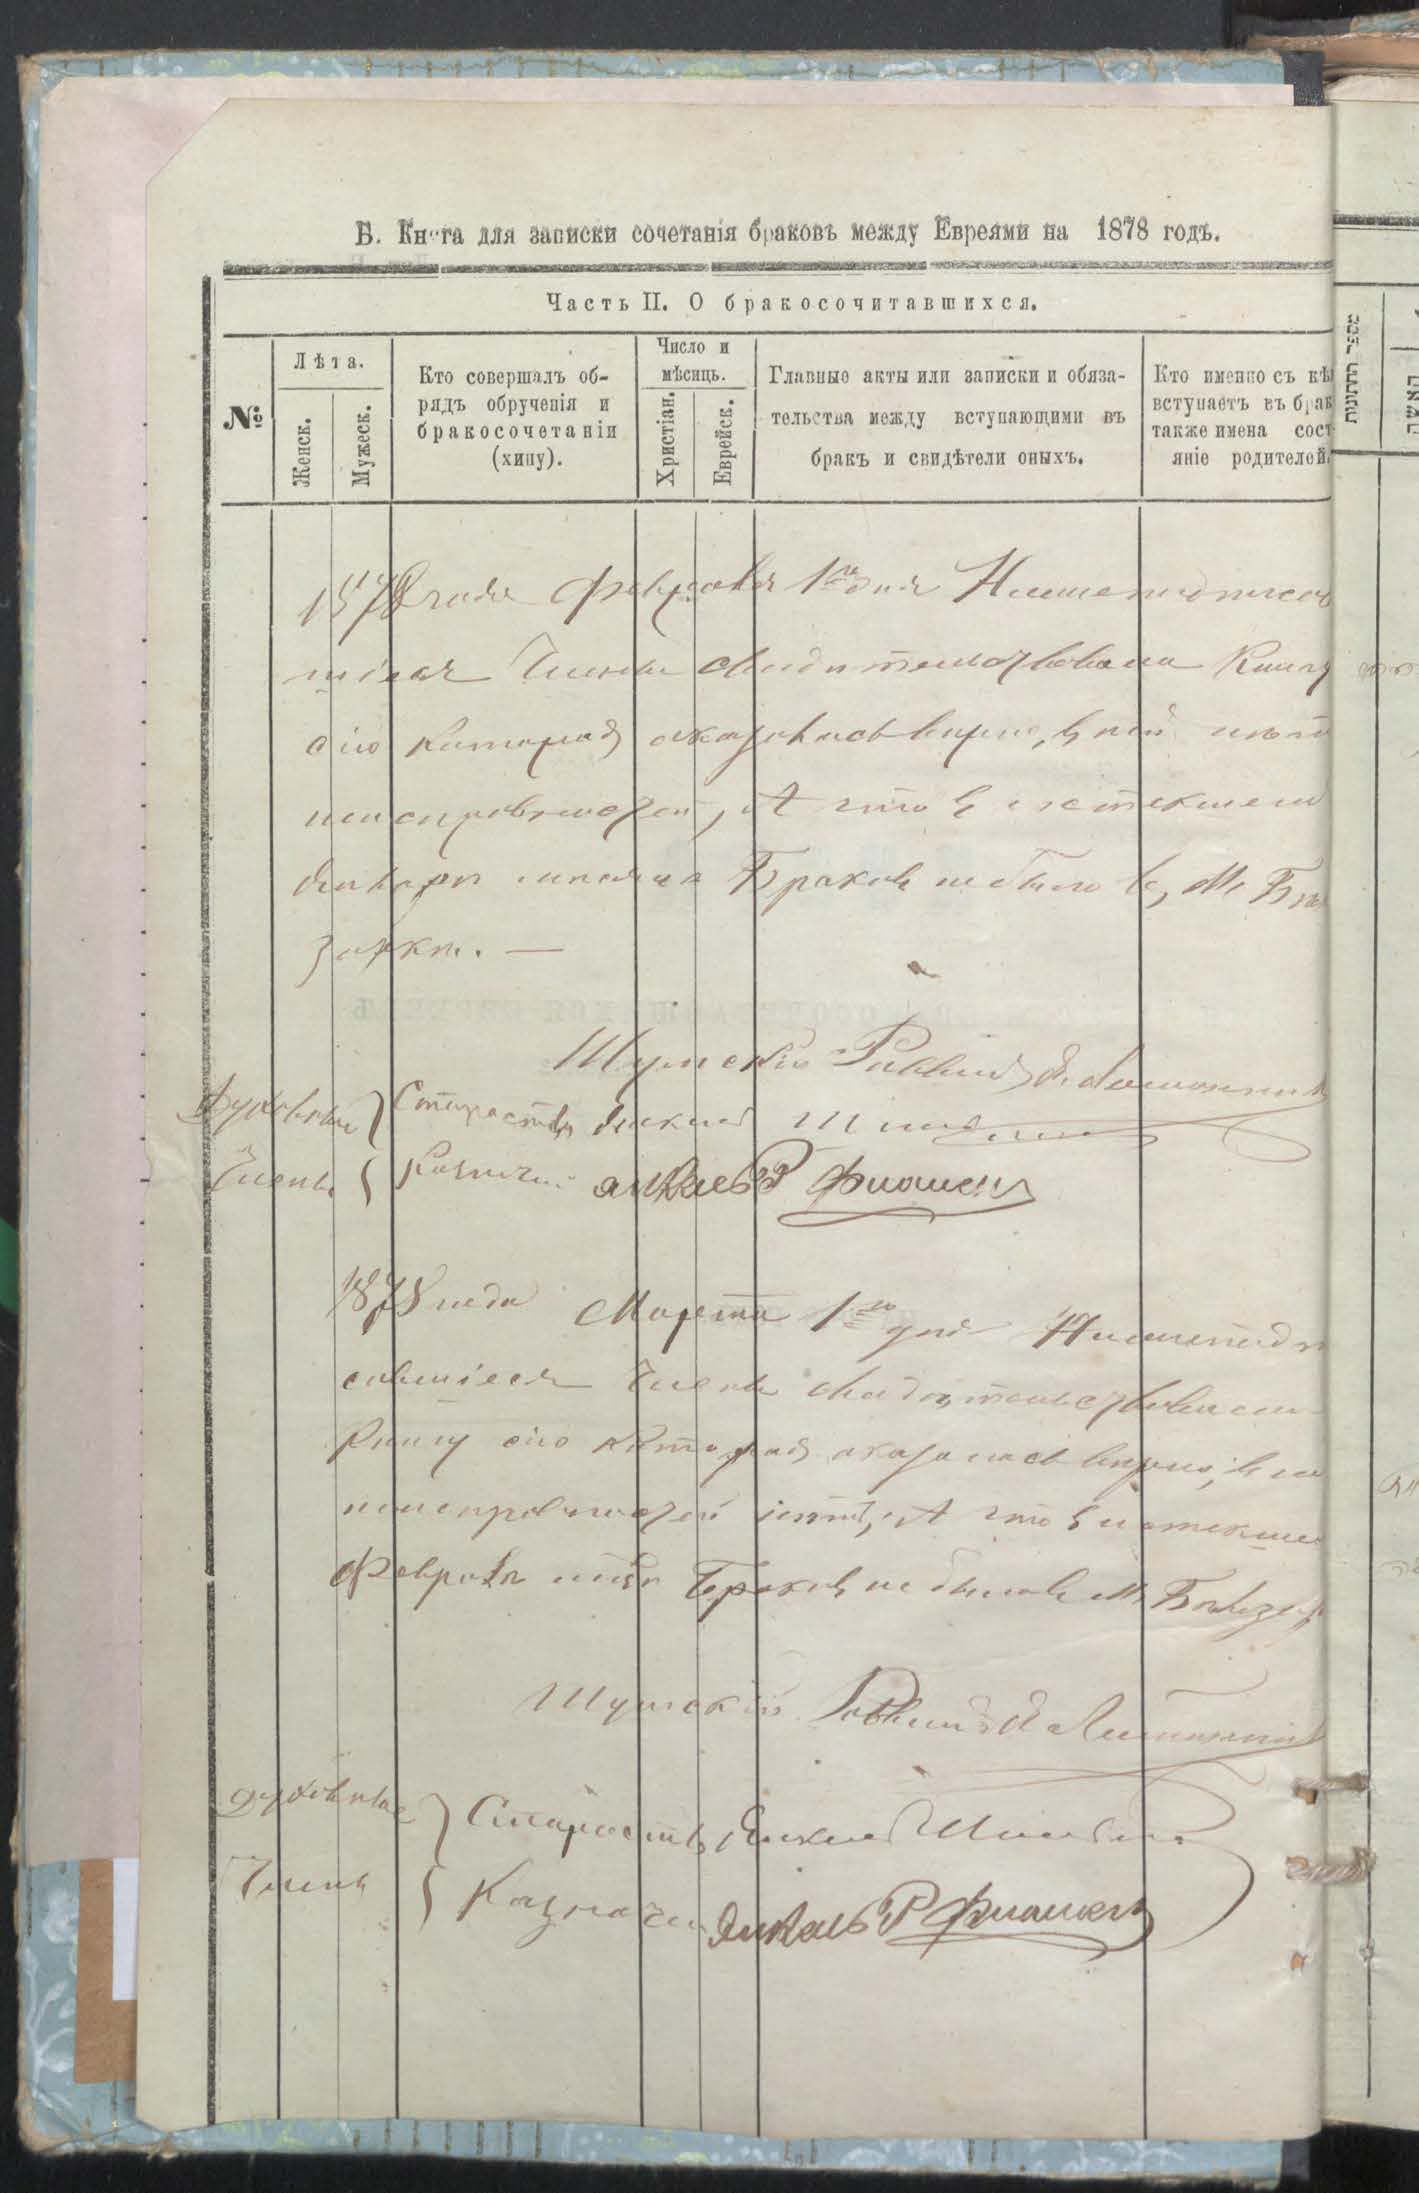 Б. Книга для записки сочетанія браковъ между Евреями на 1878 годъ.
Часть II. О бракосочитавшихся.
№
Лѣта.
Женск.
Мужеск.
Кто совершалъ об-
рядъ обрученія и
бракосочетаніи
(хипу).
Число и
мѣсяць.
Христіан.
Еврейск.
Главные акты или записки и обяза-
тельства между вступающими въ
бракъ и свидѣтели оныхъ.
Кто именно съ кѣ
вступаетъ въ брак
также имена сост
яніе родителей.
1878 года Февраля 1го дня Нижеподписав
шіеся Члены свидѣтельствовали Книгу
сію которая оказалась верна, в ней нѣтъ
неисправностей, А что в истекшем
Январи месяце Браков не было в М.
Шумскій Раввин
Духовные Староста Янкель
Члены Казначей Янкель Р
1878 года Марта 1го дня Нижеподпи
савшіеся Члены свидѣтельствовали
Книгу сію которая оказалась верна, в ней
неисправностей нѣтъ, А что в истекшем
Феврале Браков не было в М.
Шумскій Раввин
Духовные Староста Янкель
Члены Казначей Янкель Р